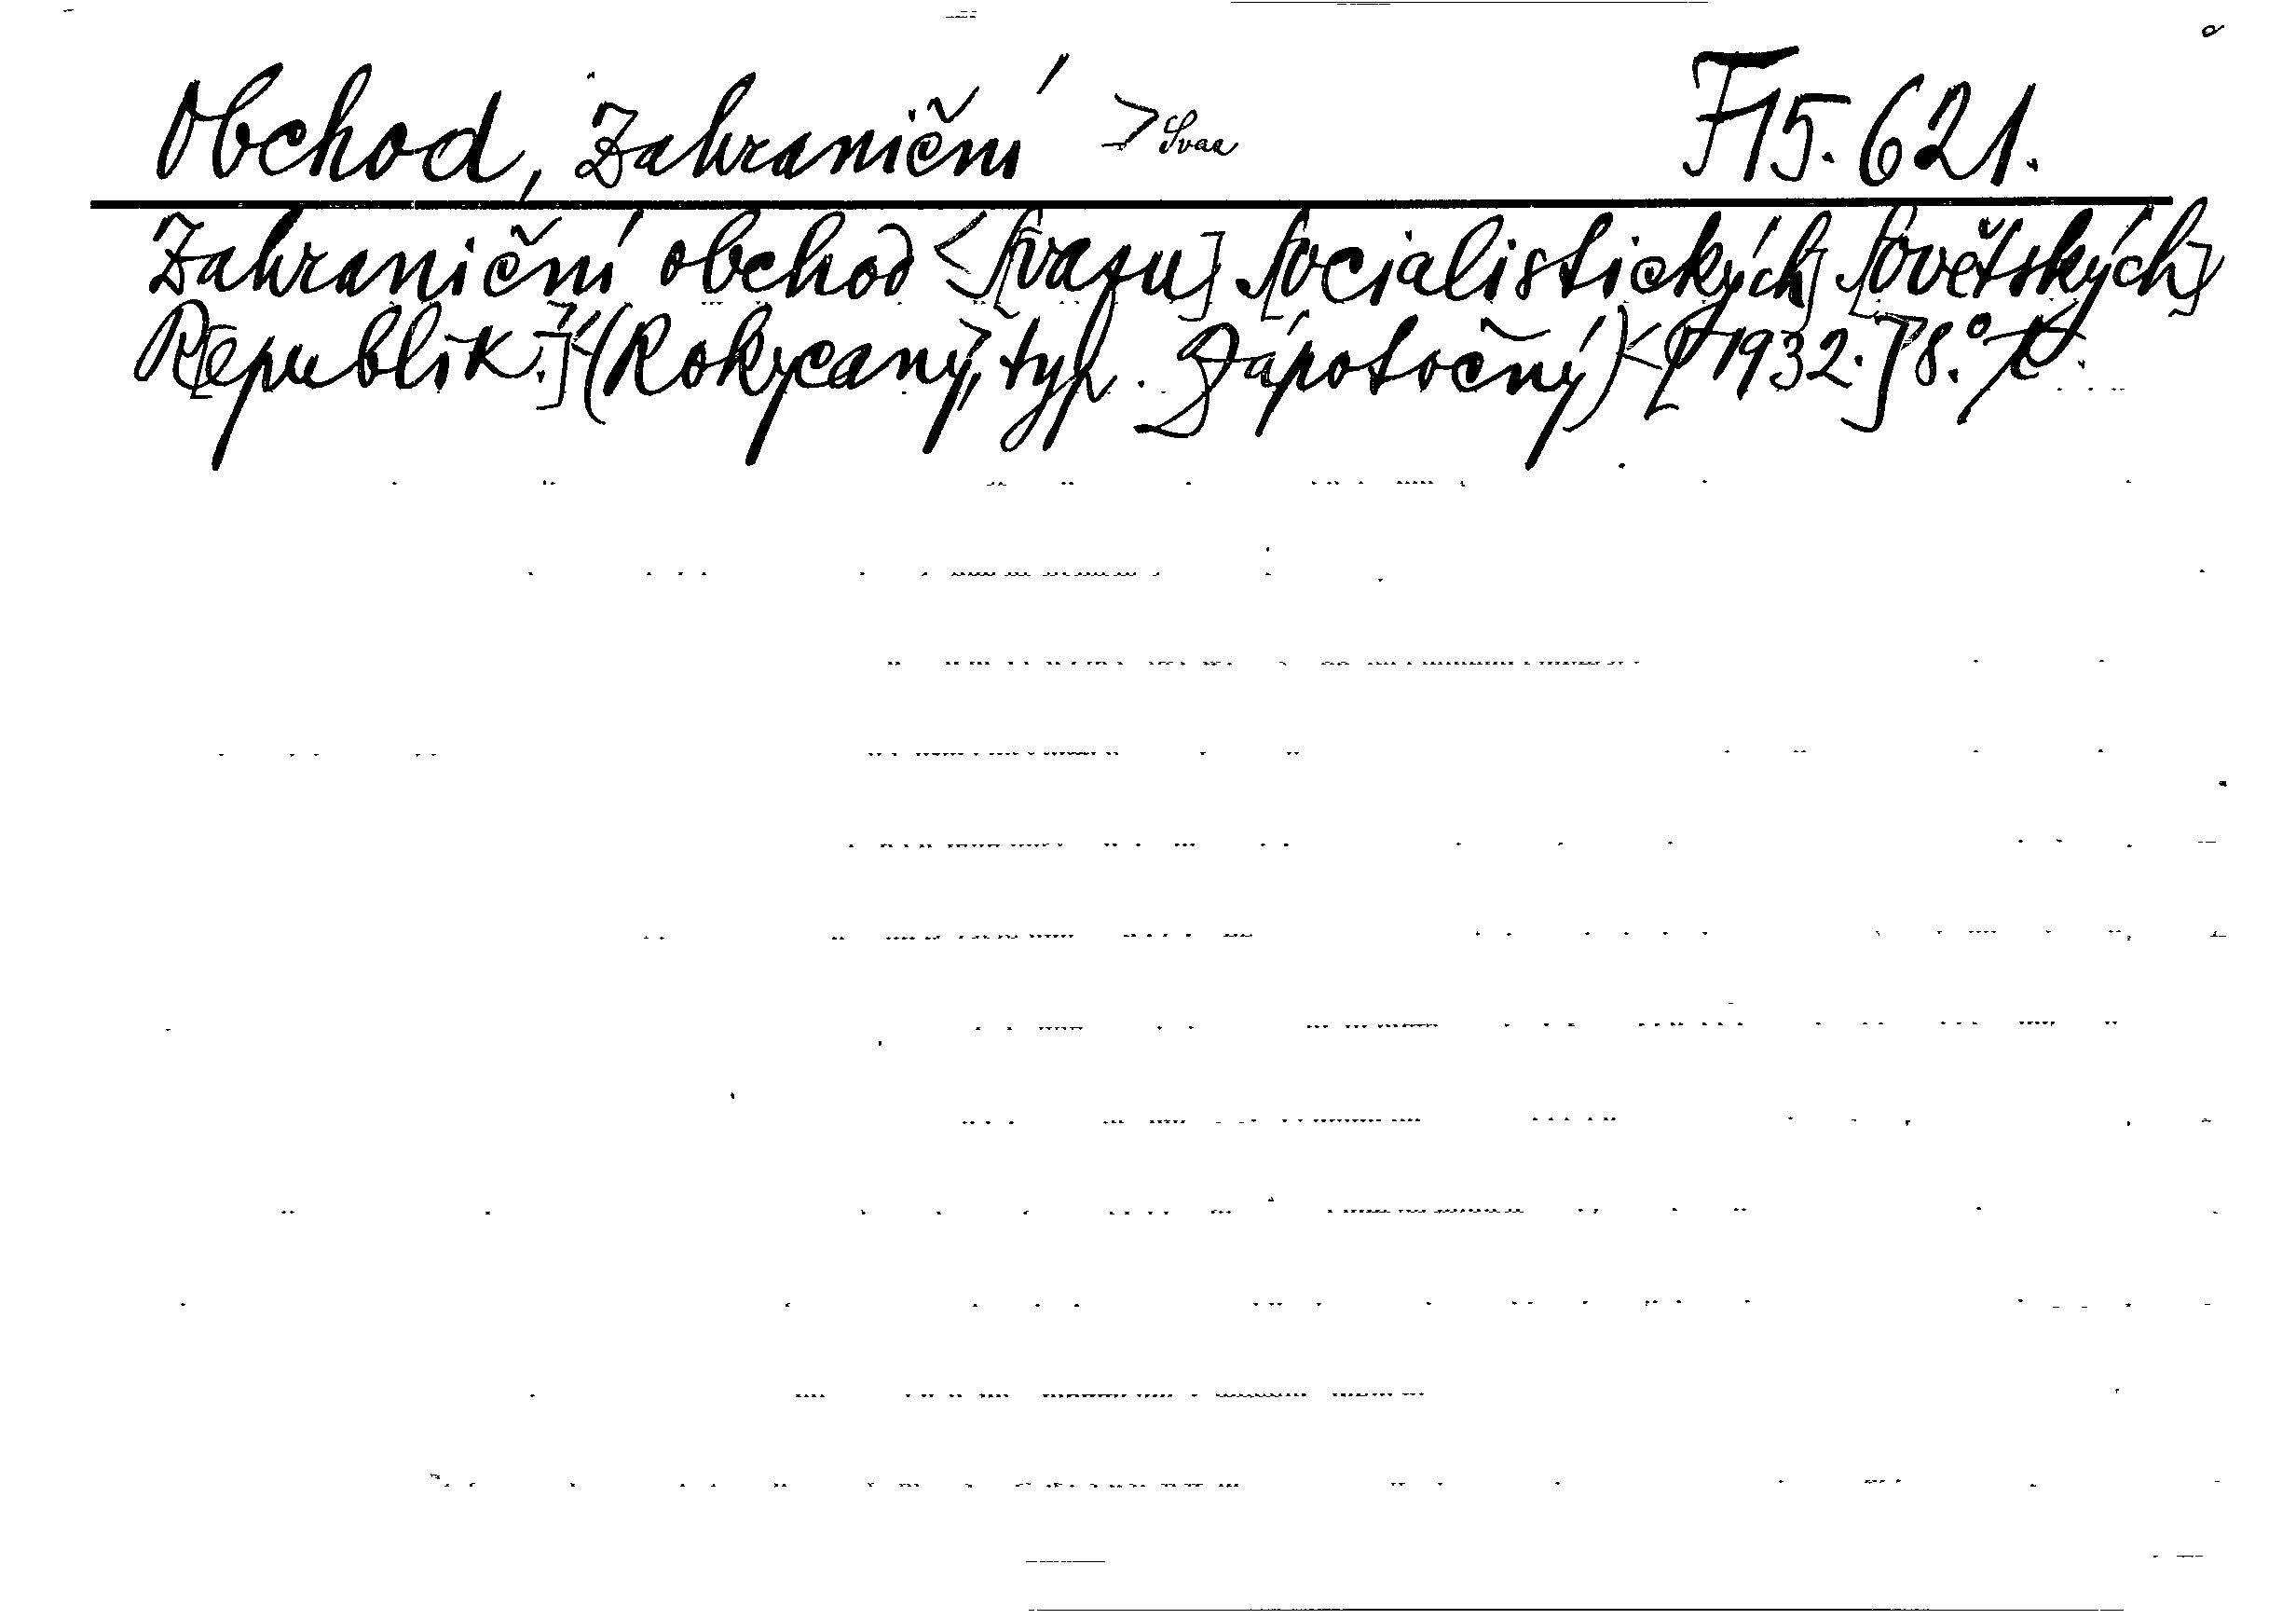 Obchod, Zahraniční > Svaz F 15.621.
Zahraniční obchod <S[vazu] S[ocialistických] S[ovětských]
R[epublik.]> (Rokycany, typ. Zápotočný) <[1932.] 8.°